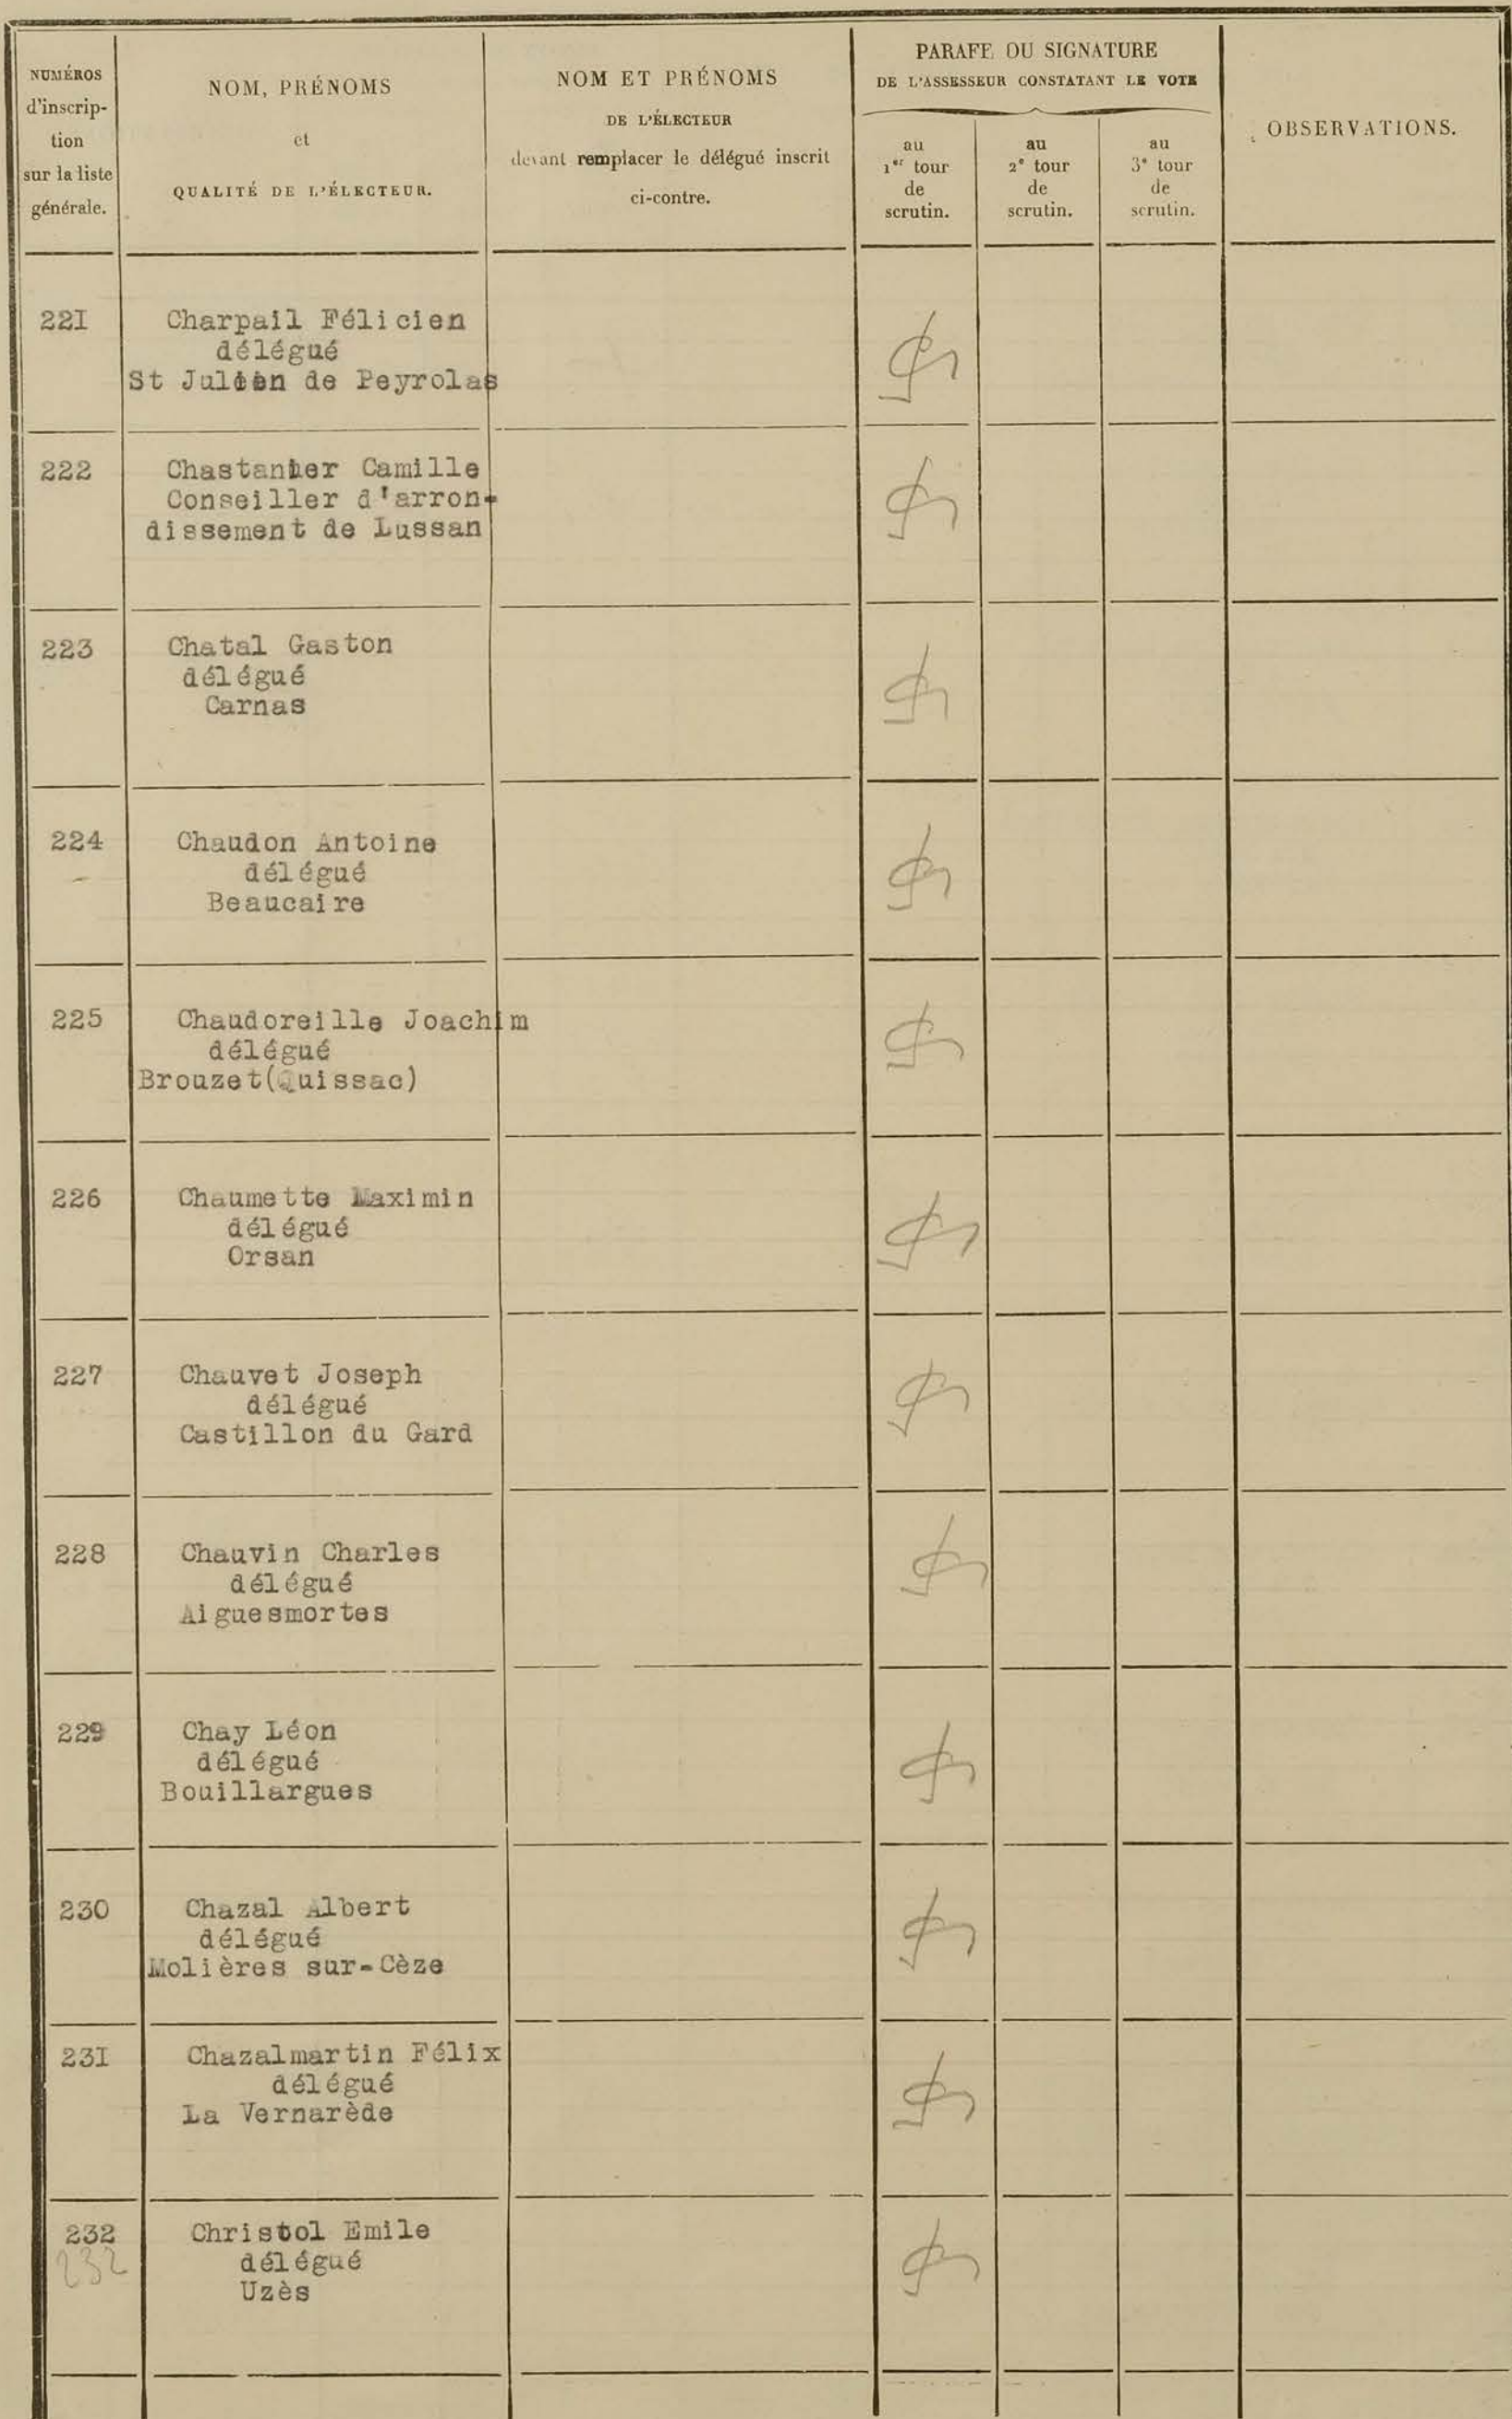 NUMÉROS
d'inscrip-
tion
sur la liste
générale.
NOM, PRÉNOMS
et
QUALITÉ DE L'ÉLECTEUR.
NOM ET PRÉNOMS
DE L'ÉLECTEUR
devant remplacer le délégué inscrit
ci-contre.
PARAFE OU SIGNATURE
DE L'ASSESSEUR CONSTATANT LE VOTE
au
1er tour
de
scrutin.
au
2e tour
de
scrutin.
au
3e tour
de
scrutin.
OBSERVATIONS.
22I Charpail Félicien
délégué
St Julien de Peyrolas
222 Chastanier Camille
Conseiller d'arron-
dissement de Lussan
223 Chatal Gaston
délégué
Carnas
224 Chaudon Antoine
délégué
Beaucaire
225 Chaudoreille Joachim
délégué
Brouzet(Quissac)
226 Chaumette Maximin
délégué
Orsan
227 Chauvet Joseph
délégué
Castillon du Gard
228 Chauvin Charles
délégué
Aiguesmortes
229 Chay Léon
délégué
Bouillargues
230 Chazal Albert
délégué
Molières sur-Cèze
23I Chazalmartin Félix
délégué
La Vernarède
232 Christol Emile
232 délégué
Uzès